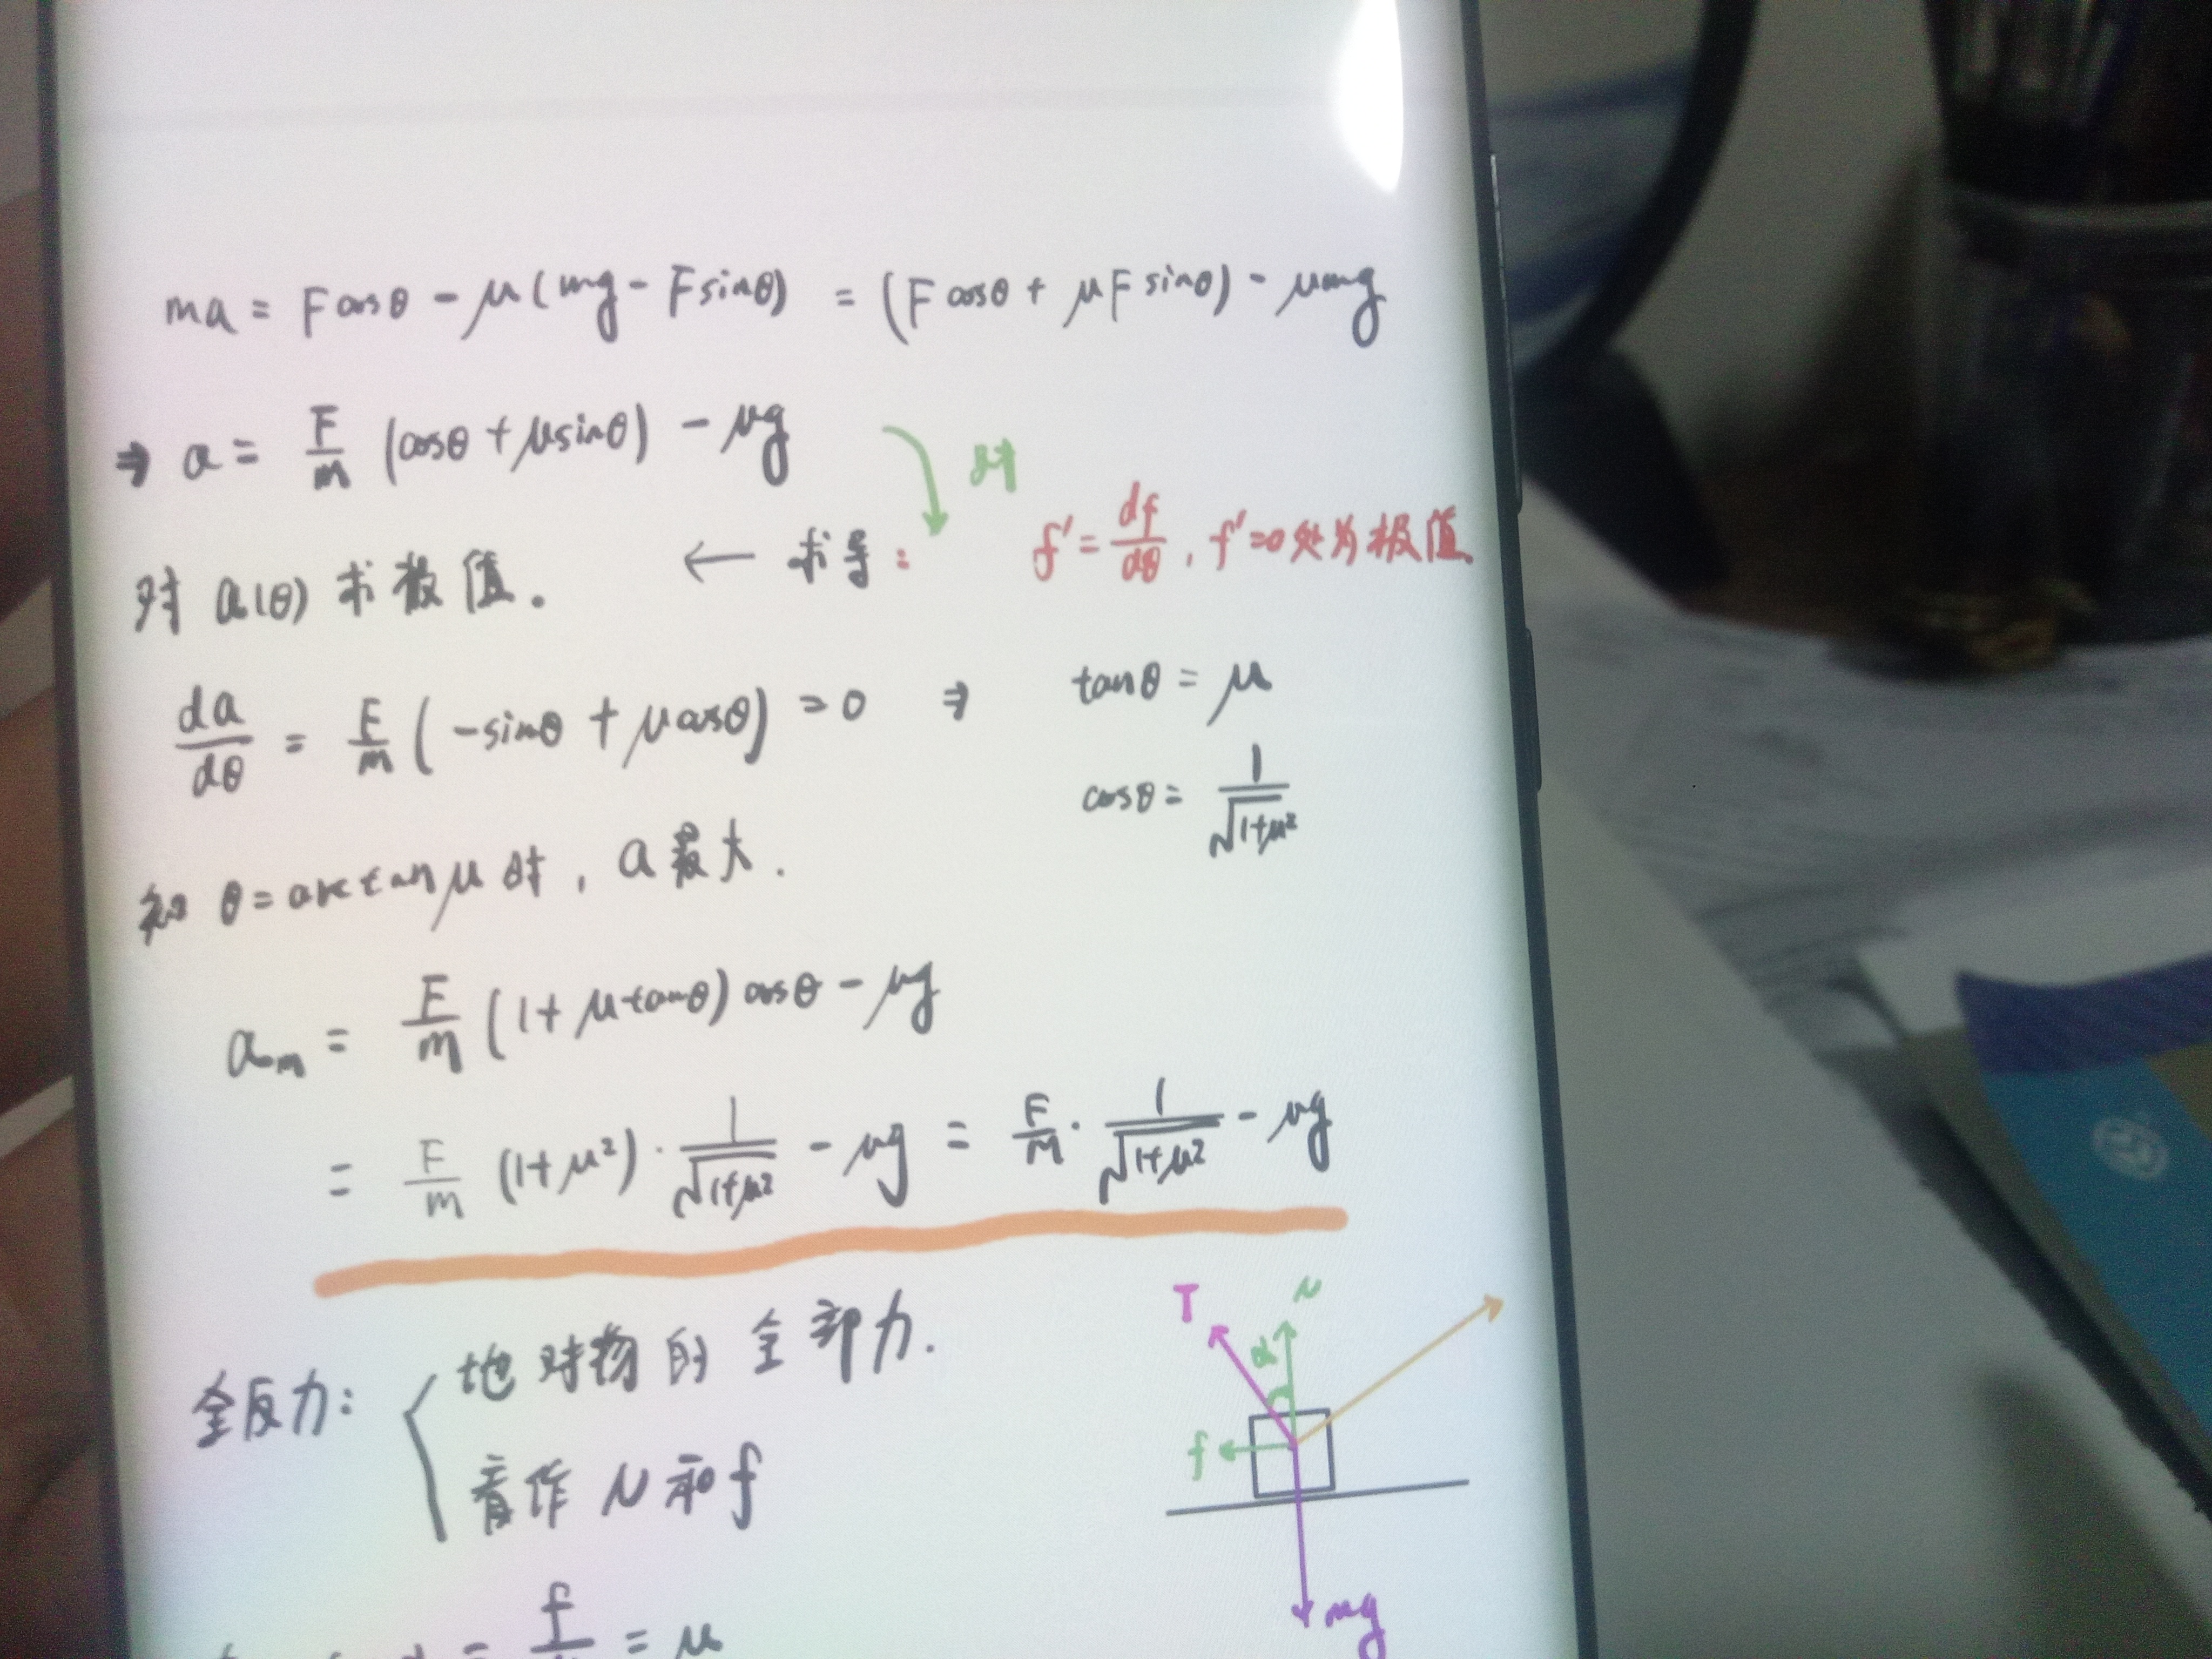 ma = Fcosθ - μ(mg - Fsinθ) = (Fcosθ + μFsinθ) - μmg
⇒ a = F/m (cosθ + μsinθ) - μg
对
对 a(θ) 求极值. ← 求导: f' = df/dθ, f'=0处为极值.
da/dθ = F/m (-sinθ + μcosθ) = 0 ⇒ tanθ = μ
cosθ = 1/√(1+μ²)
知 θ = arctanμ 时, a最大.
a_m = F/m (1 + μtanθ) cosθ - μg
= F/m (1+μ²) · 1/√(1+μ²) - μg = F/m · 1/√(1+μ²) - μg
T N
全反力: { 地对物的全部力.
α
看作 N和f
f
f/ = μ
mg